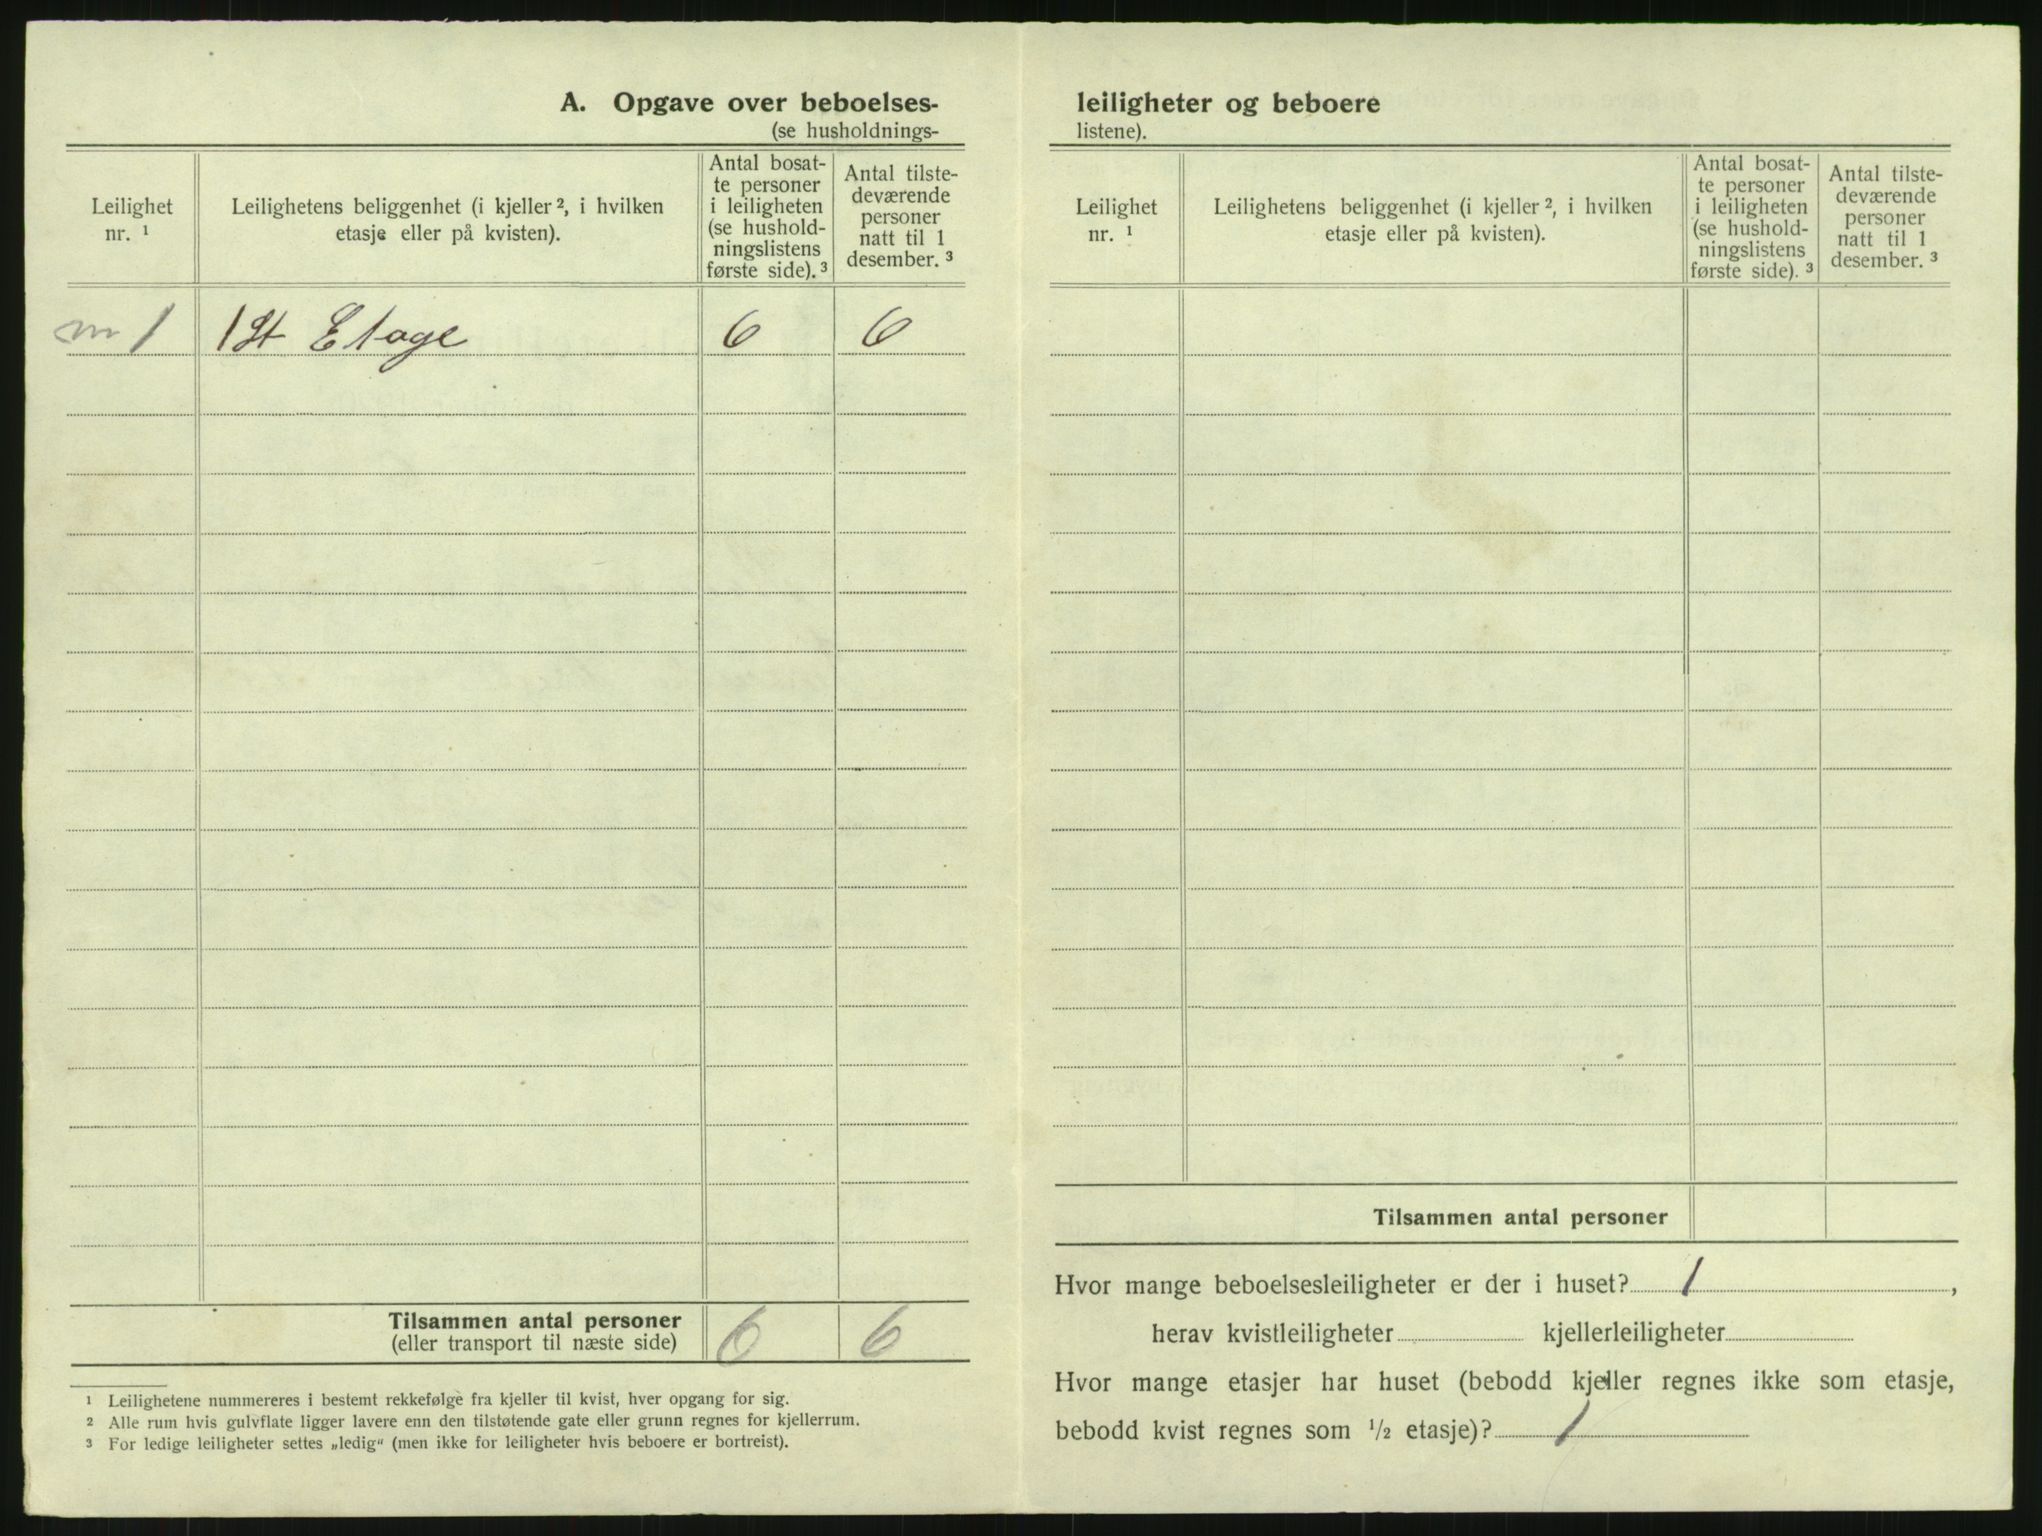 A. Opgave over beboelses-
(se husholdnings-
Leilighet
nr. ¹
Leilighetens beliggenhet (i kjeller ², i hvilken
etasje eller på kvisten).
Antal bosat-
te personer
i leiligheten
(se hushold-
ningslistens
første side). ³
Antal tilste-
deværende
personer
natt til 1
desember. ³
1 1st Etage 6 6
Tilsammen antal personer 6 6
(eller transport til næste side)
¹ Leilighetene nummereres i bestemt rekkefølge fra kjeller til kvist, hver opgang for sig.
² Alle rum hvis gulvflate ligger lavere enn den tilstøtende gate eller grunn regnes for kjellerrum.
³ For ledige leiligheter settes „ledig“ (men ikke for leiligheter hvis beboere er bortreist).
leiligheter og beboere
listene).
Leilighet
nr. ¹
Leilighetens beliggenhet (i kjeller ², i hvilken
etasje eller på kvisten).
Antal bosat-
te personer
i leiligheten
(se hushold-
ningslistens
første side). ³
Antal tilste-
deværende
personer
natt til 1
desember. ³
Tilsammen antal personer
Hvor mange beboelsesleiligheter er der i huset? 1 ,
herav kvistleiligheter kjellerleiligheter
Hvor mange etasjer har huset (bebodd kjeller regnes ikke som etasje,
bebodd kvist regnes som ½ etasje)? 1